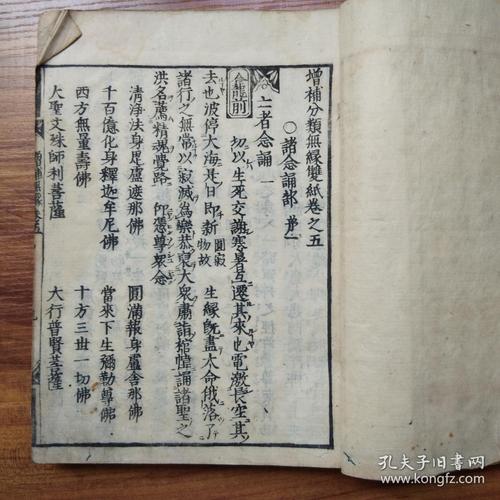 增補分類無縁雙紙卷之五
○諸念誦部 第一
亡者念誦 一
龕前
切以生死交謝寒暑互遷其來也電激長空其
去也波停大海是日即新 圓寂 物故 生縁既盡大命俄落了
諸行之無常以寂滅為樂恭裒大衆肅詣棺幃誦諸聖之
洪名薦精魂覺路 仰憑尊衆念
清淨法身毘盧遮那佛 圓滿報身盧舍那佛
千百億化身釋迦牟尼佛 當來下生彌勒尊佛
西方無量壽佛 十方三世一切佛
大聖文殊師利菩薩 大行普賢菩薩
孔夫子旧书网
www.kongfz.com